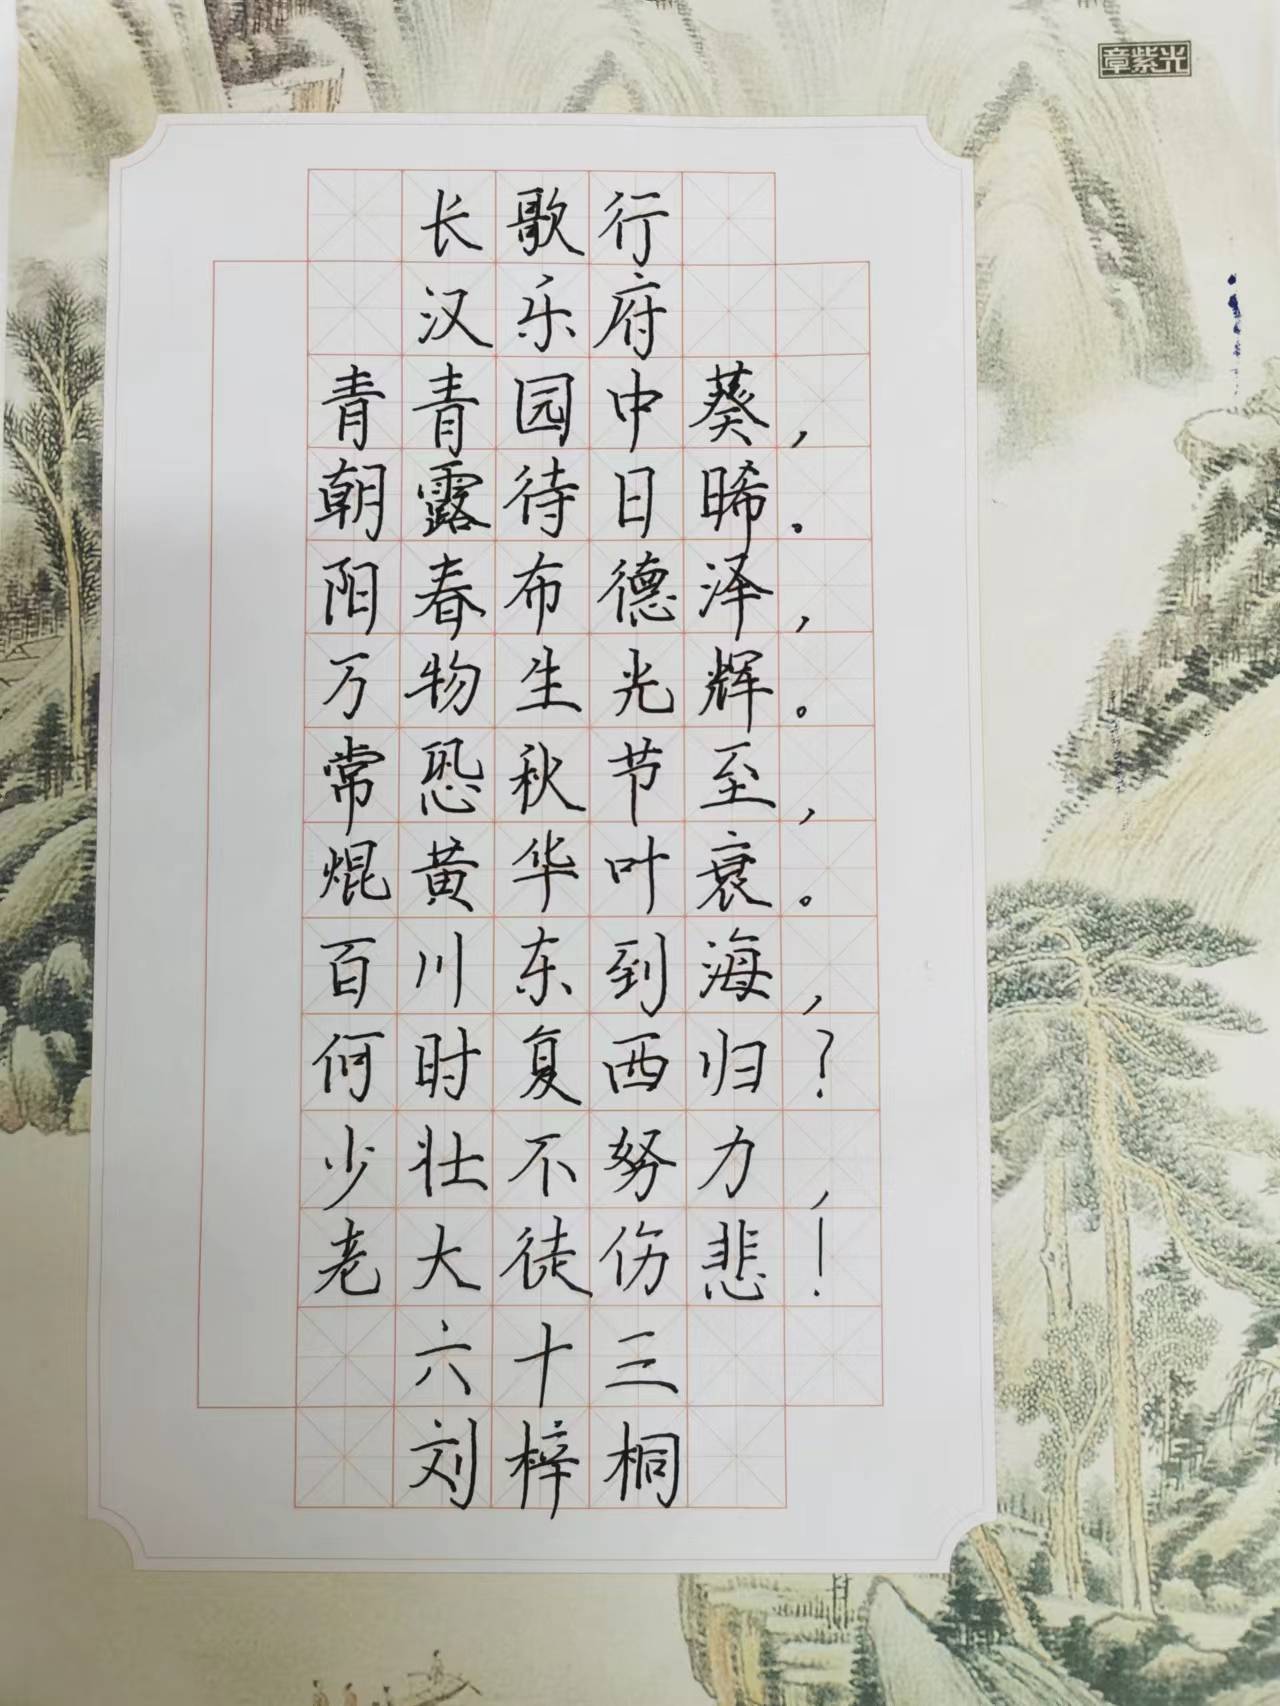 章紫光
长歌行
汉乐府
青青园中葵，
朝露待日晞。
阳春布德泽，
万物生光辉。
常恐秋节至，
焜黄华叶衰。
百川东到海，
何时复西归？
少壮不努力，
老大徒伤悲！
六十三
刘梓桐